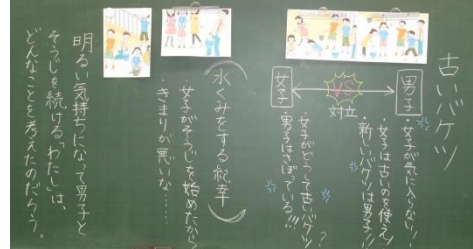 古いバケツ
男子
VS
対立
女子
・女子が気に入らない!
・女子は古いのを使え!
・新しいバケツは男子!
・女子がどうして古いバケツ?
・男子はさぼっている!!!
(水くみをする紀幸)
・女子がそうじを始めたから
・きまりが悪いな……
明るい気持ちになって男子と
そうじを続ける「わたし」は、
どんなことを考えたのだろう。